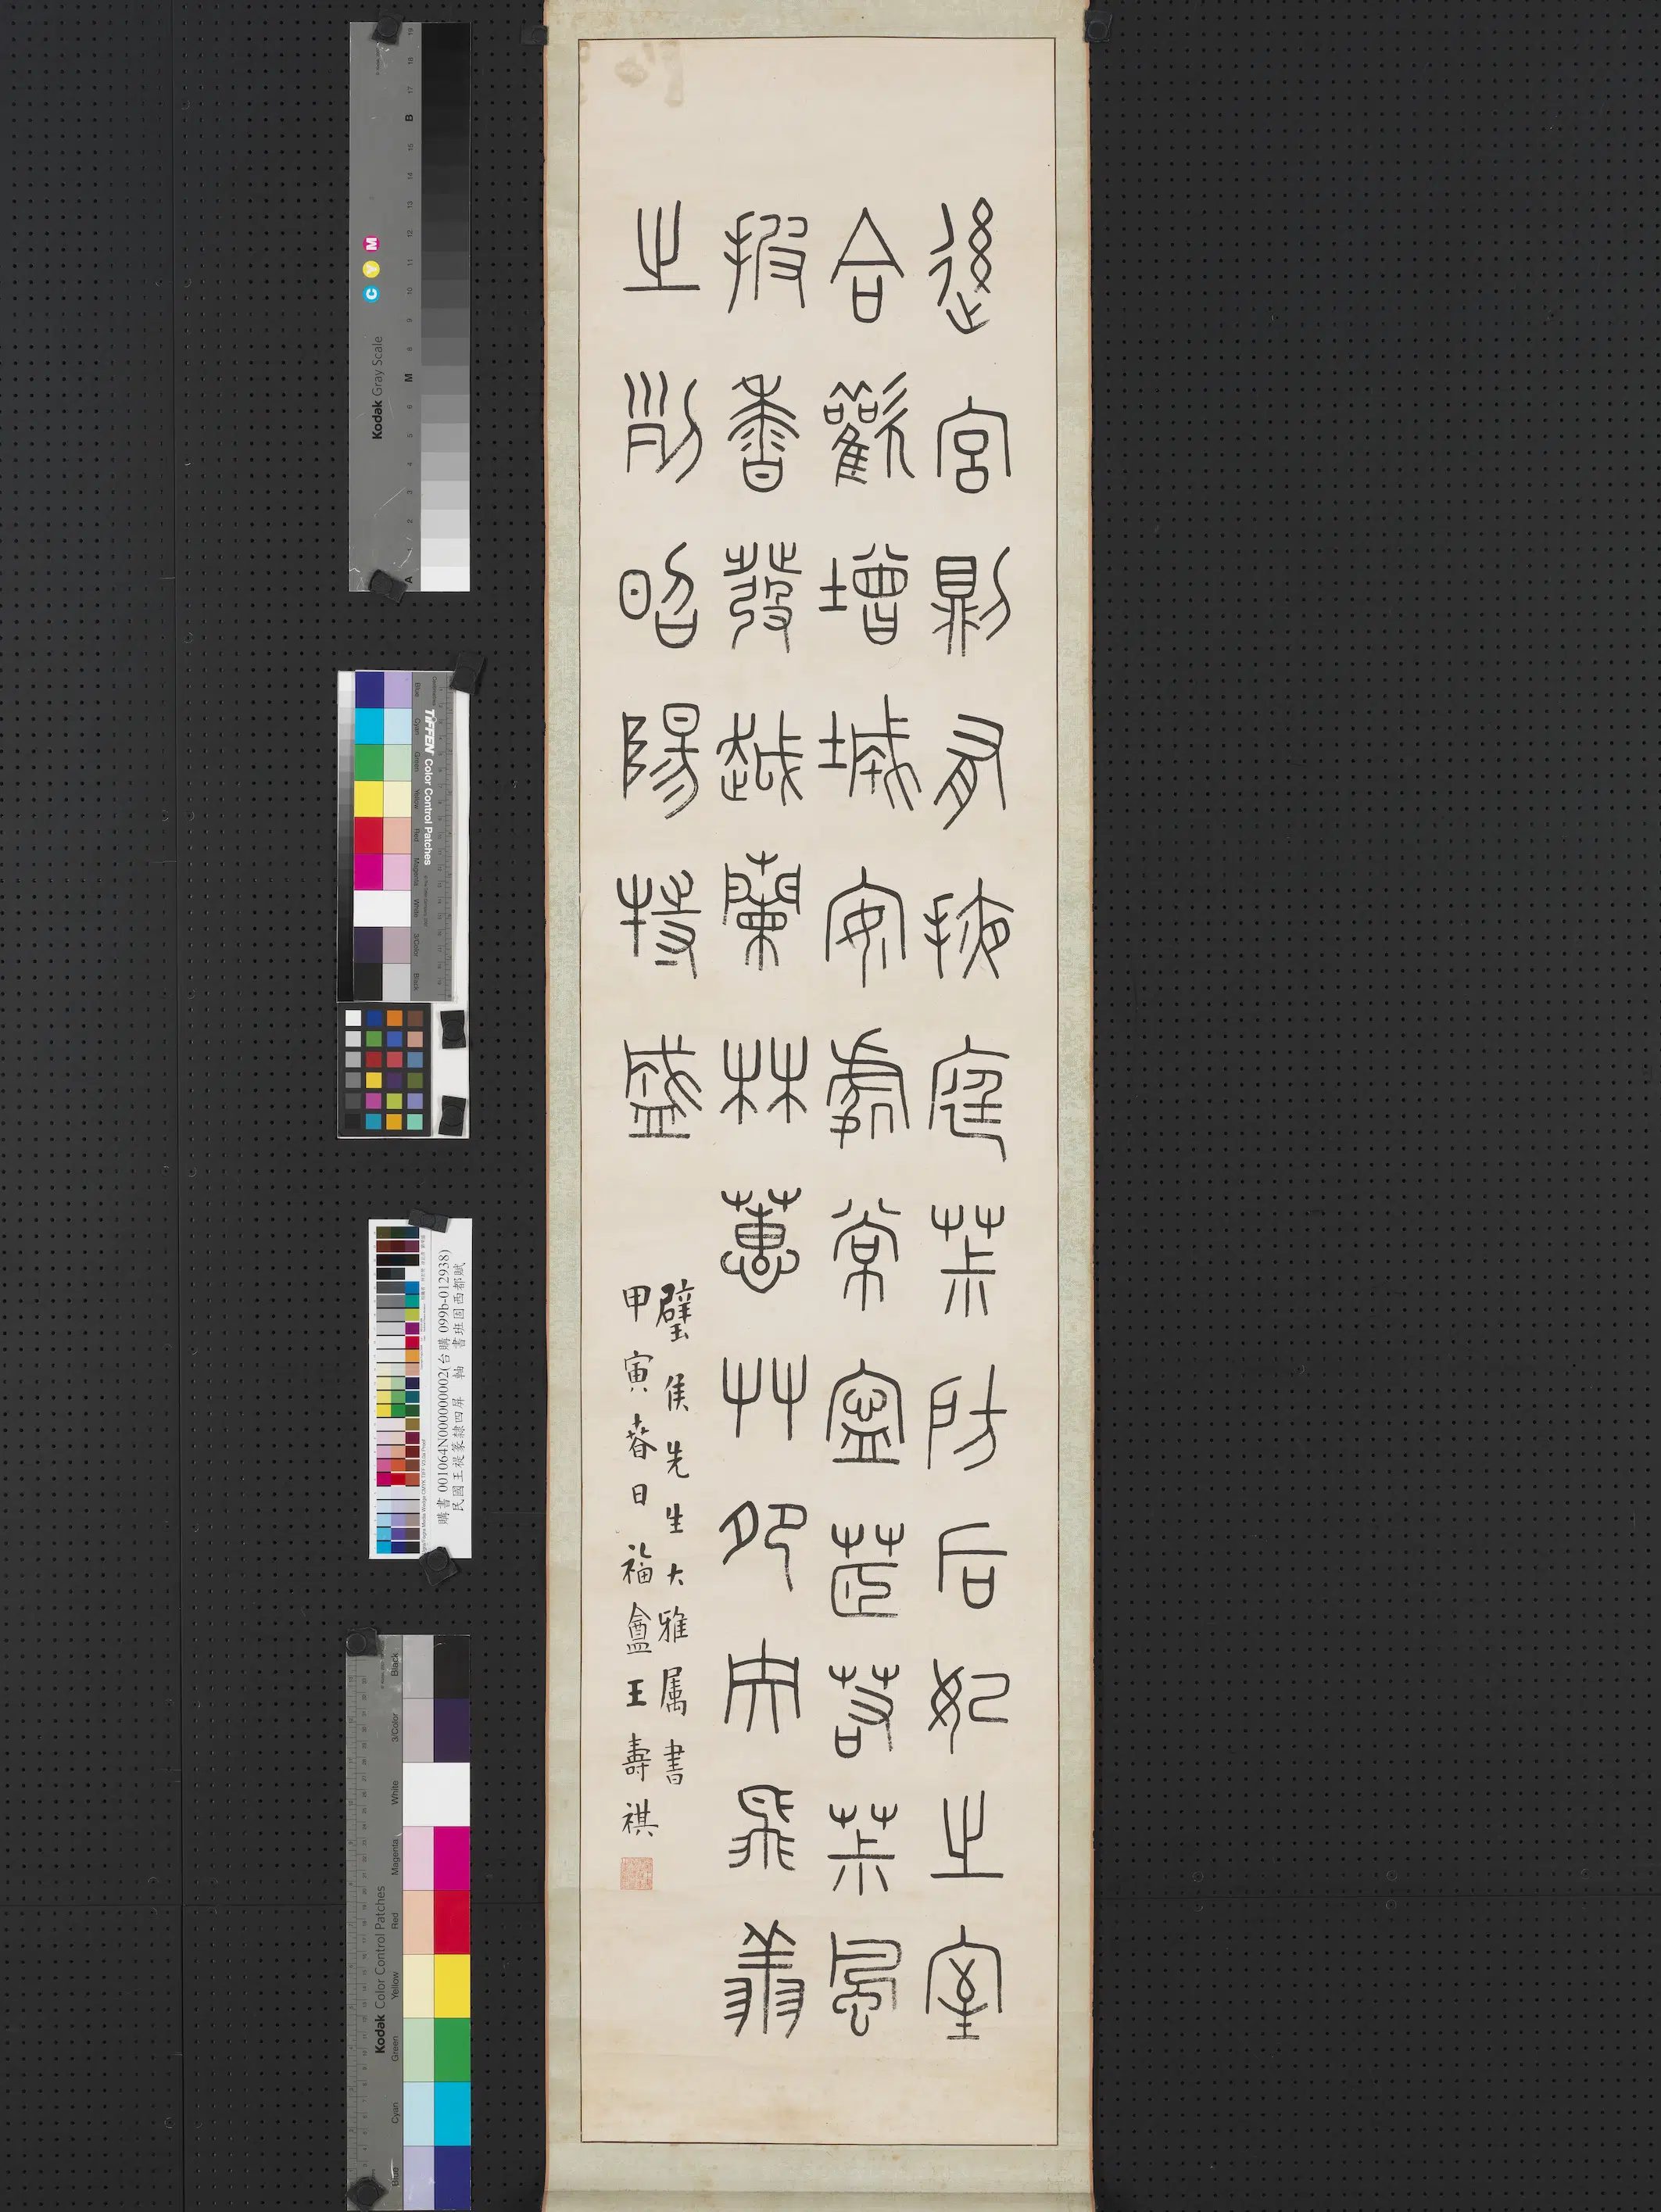 後宮則有掖庭茮房后妃之室
合歡增城安處常寍茝若茮風
披香發越蘭林蕙艸夗央飛翔
之列昭陽特盛
璧侯先生大雅属書
甲寅春日福盦王壽祺
Kodak Gray Scale
C Y M
TIFFEN Color Control Patches
Blue Cyan Green Yellow Red Magenta White 3/Color Black
購書 001064N000000002(台購 099b-012938)
民國王禔篆隸四屏 軸 書班固西都賦
Kodak Color Control Patches
Blue Cyan Green Yellow Red Magenta White 3/Color Black